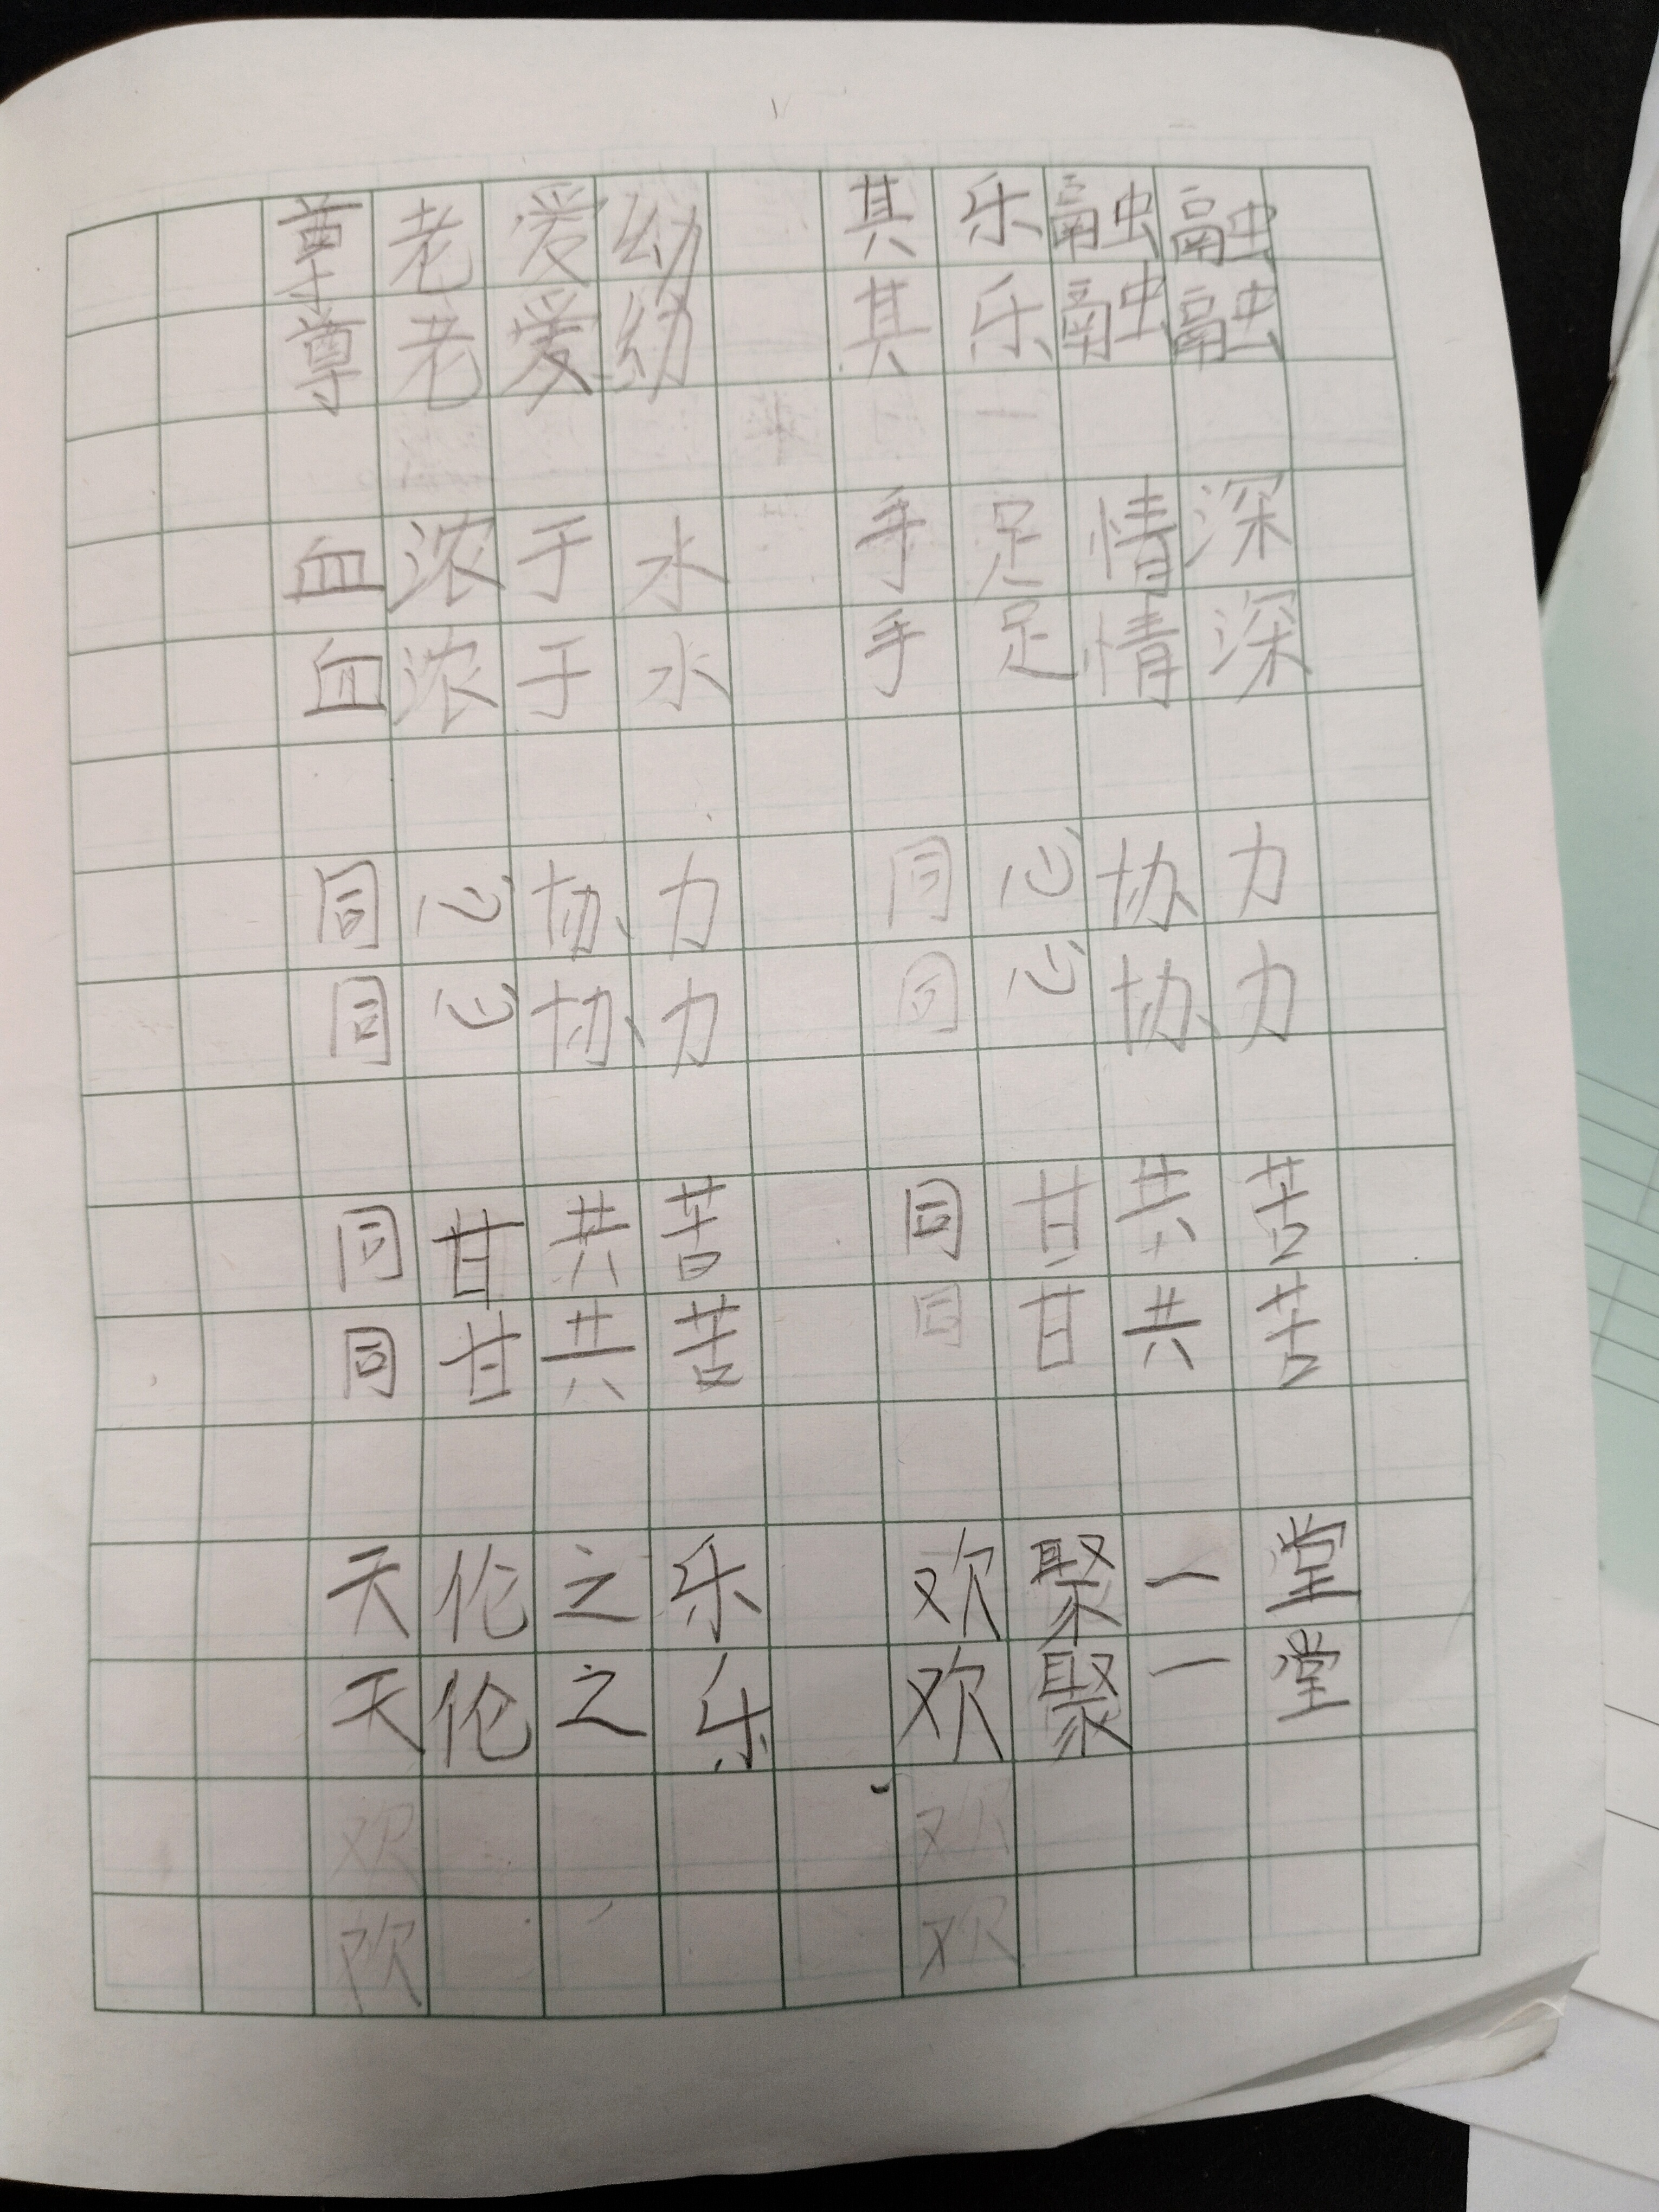 尊老爱幼 其乐融融
尊老爱幼 其乐融融
血浓于水 手足情深
血浓于水 手足情深
同心协力 同心协力
同心协力 同心协力
同甘共苦 同甘共苦
同甘共苦 同甘共苦
天伦之乐 欢聚一堂
天伦之乐 欢聚一堂
欢 欢
欢 欢